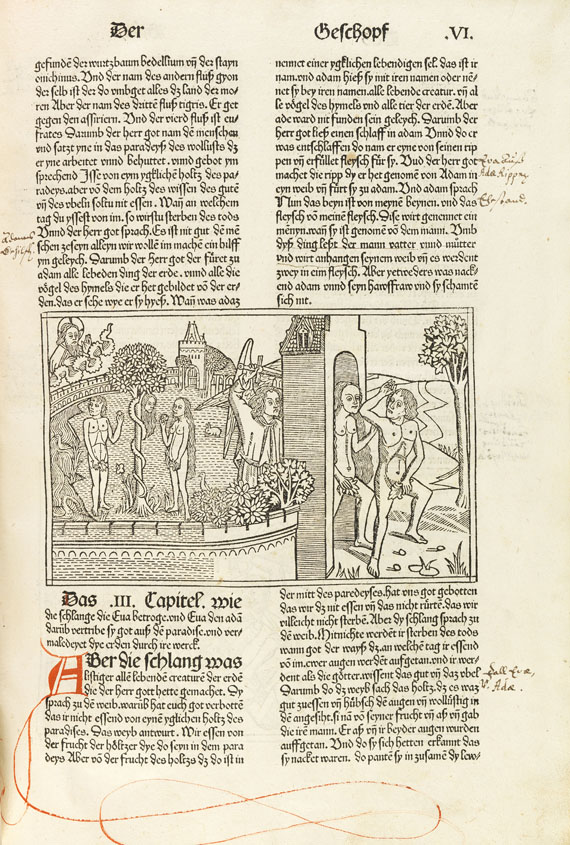 Der Geschopf .VI.
gefundē der wurtzbaum bedellium vñ der stayn
onichinus. Vnd der nam des andern fluß gyon
der selb ist der do vmbget alles dz land der mo-
ren Aber der nam des drittē fluß tigris. Er get
gegen den assiriern. Vnd der vierd fluß ist eu-
frates Darumb der herr got nam dē menschen
vnd satzt yne in das paradeyß des wollusts dz
er yne arbeitet vnnd behuttet. vnnd gebot ym
sprechend Isse von eyn yglichē holtz des pa-
radeys.aber võ dem holtz des wissen des gutē
vñ des vbeln soltu nit essen. Wañ an welchem
tag du yssest von im. so wirstu sterben des tods
Vnnd der herr got sprach. Es ist nit gut dē mē
schen zeseyn alleyn wir wöllē im machē ein hilff
ym geleych. Darumb der herr got der füret zu
adam alle lebēden ding der erde. vnnd alle die
vögel des hymels die er het gebildet võ der er-
den.das er sche wye er sy hyeß. Wañ was adaz
nennet einer ygklichen lebendigen sel. das ist ir
nam.vnd adam hieß sy mit iren namen oder nē-
net sy bey iren namen.alle lebende creatur. vñ al
le vögel des hymels vnd alle tier der erdē. Aber
ade ward nit funden sein geleych. Darumb der
herr got ließ einen schlaff in adam Vnnd do er
was entschlaffen do nam er eyne von seinen rip
pen vñ erfüllet fleysch für sy. Vnd der herr got
machet die ripp dy er het genomē von Adam in
eyn weib vñ fürt sy zu adam. Vnd adam sprach
Nun das beyn ist von meynē beynen. vnd das
fleysch võ meinē fleysch. Dise wirt genennet ein
mēnyn.wañ sy ist genomē võ dem mann. Vmb
dyß ding leßt der mann vatter vnnd mütter
vnd wirt anhangen seynem weib vñ es werdent
zwey in eim fleysch. Aber yetweders was nack-
end adam vnnd seyn hawsfraw vnd sy schamtē
sich nit.
Das .III. Capitel. wie
die schlange die Eua betroge.vnd Euā den adā
darüb vertribe sy got auß dē paradise.vnd ver-
maledeyet dye erden durch irc werck.
ABer die schlang was
listiger allē lebēdē creaturē der erdē
die der herr gott hette gemachet. Sy
sprach zu dē weib.warüb hat euch got verbottē
das ir nicht essend von eynē yglichen holtz des
paradises. Das weyb antwurt. Wir essen von
der frucht der höltzer dye do seyn in dem para
deys Aber võ der frucht des holtzs dz do ist in
der mitt des paredeyses.hat vns got gebotten
das wir dz nit essen vñ das nicht rürtē.das wir
villeicht nicht sterbē. Aber dy schlang sprach zu
dē weib. Mitnichte werdēt ir sterben des tods
wann got der wayß dz.an welchē tag ir essend
võ im.ewer augen werdēt aufgetan.vnd ir wer-
dent als die götter.wissent das gut vñ daz vbel
Darumb do dz weyb sach das holtz.dz es waz
gut zuessen vñ hübsch dē augen vñ wollüstig in
dē angesiht.sī nā võ seyner frucht vñ aß vñ gab
die irē mann. Er aß vñ ir beyder augen wurden
auffgetan. Vnd do sy sich hetten erkannt das
sy nacket waren. do pantē sy in zusamē dy lew-
Ehestand.